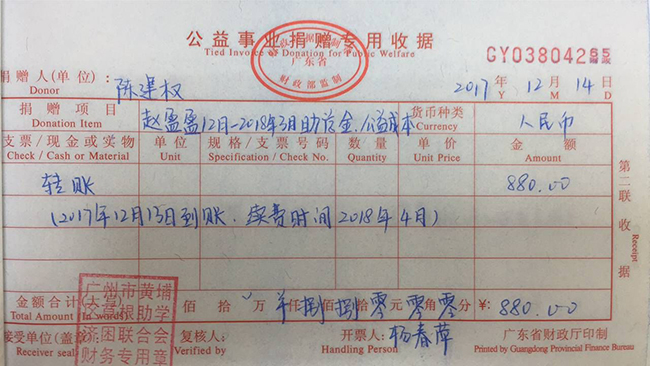 公益事业捐赠专用收据
Tied Invoice of Donation for Public Welfare
广东省
财政部监制
GY03804265
捐赠人(单位): 陈建权 2017年12月14日
Donor Y M D
捐赠项目 赵盈盈12月-2018年3月助学金.公益成本 货币种类 人民币
Donation Item Currency
支票/现金或实物 单位 规格/支票号码 数量 单价 金额
Check / Cash or Material Unit Specification / Check No. Quantity Unit Price Amount
转账 880.00
(2017年12月13日到账.续费时间2018年4月)
第二联 收据
Receipt
金额合计(大写) 佰拾万仟捌佰捌拾零元零角零分 ¥: 880.00
Total Amount (In words)
接受单位(盖章): 复核人: 开票人: 杨春萍 广东省财政厅印制
Receiver seal Verified by Handling Person Printed by Guangdong Provincial Finance Bureau
广州市黄埔
区 根助学
济困联合会
财务专用章